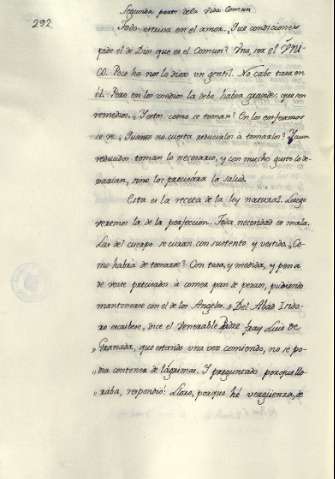 232
Segunda parte de la Vida Comun
Todo estriva en el amor. Que condiciones
pide el de Dios que es el Comun? Una, sea el UNI-
CO. Pero ha nos lo dixo un gentil. No cabe tasa en
él. Pero en los medios la debe haber grande, que son
remedios. Y estos como se toman? En los enfermos
se ve. Quanto no cuesta reducirlos à tomarlos? Y aun
reducidos toman lo necesario, y con mucho gusto lo de-
xarian, sino les precisára la salud.
Esta es la receta de la ley natural. Luego
veremos la de la perfeccion. Toda necesidad es mala.
Las del cuerpo se curan con sustento y vestido. Co-
mo habrá de tomarse? Con tasa, y medida, y pena
de verse precisados à comer pan de pesar, pudiendo
mantenerse con el de los Angeles. Del Abad Isido-
ro escriben, dice el Venerable Padre fray Luis de
„Granada, que estando una vez comiendo, no se po-
„dia contener de lágrimas. Y preguntado, porque llo-
„raba, respondió: Lloro, porque hé vergüenza, de